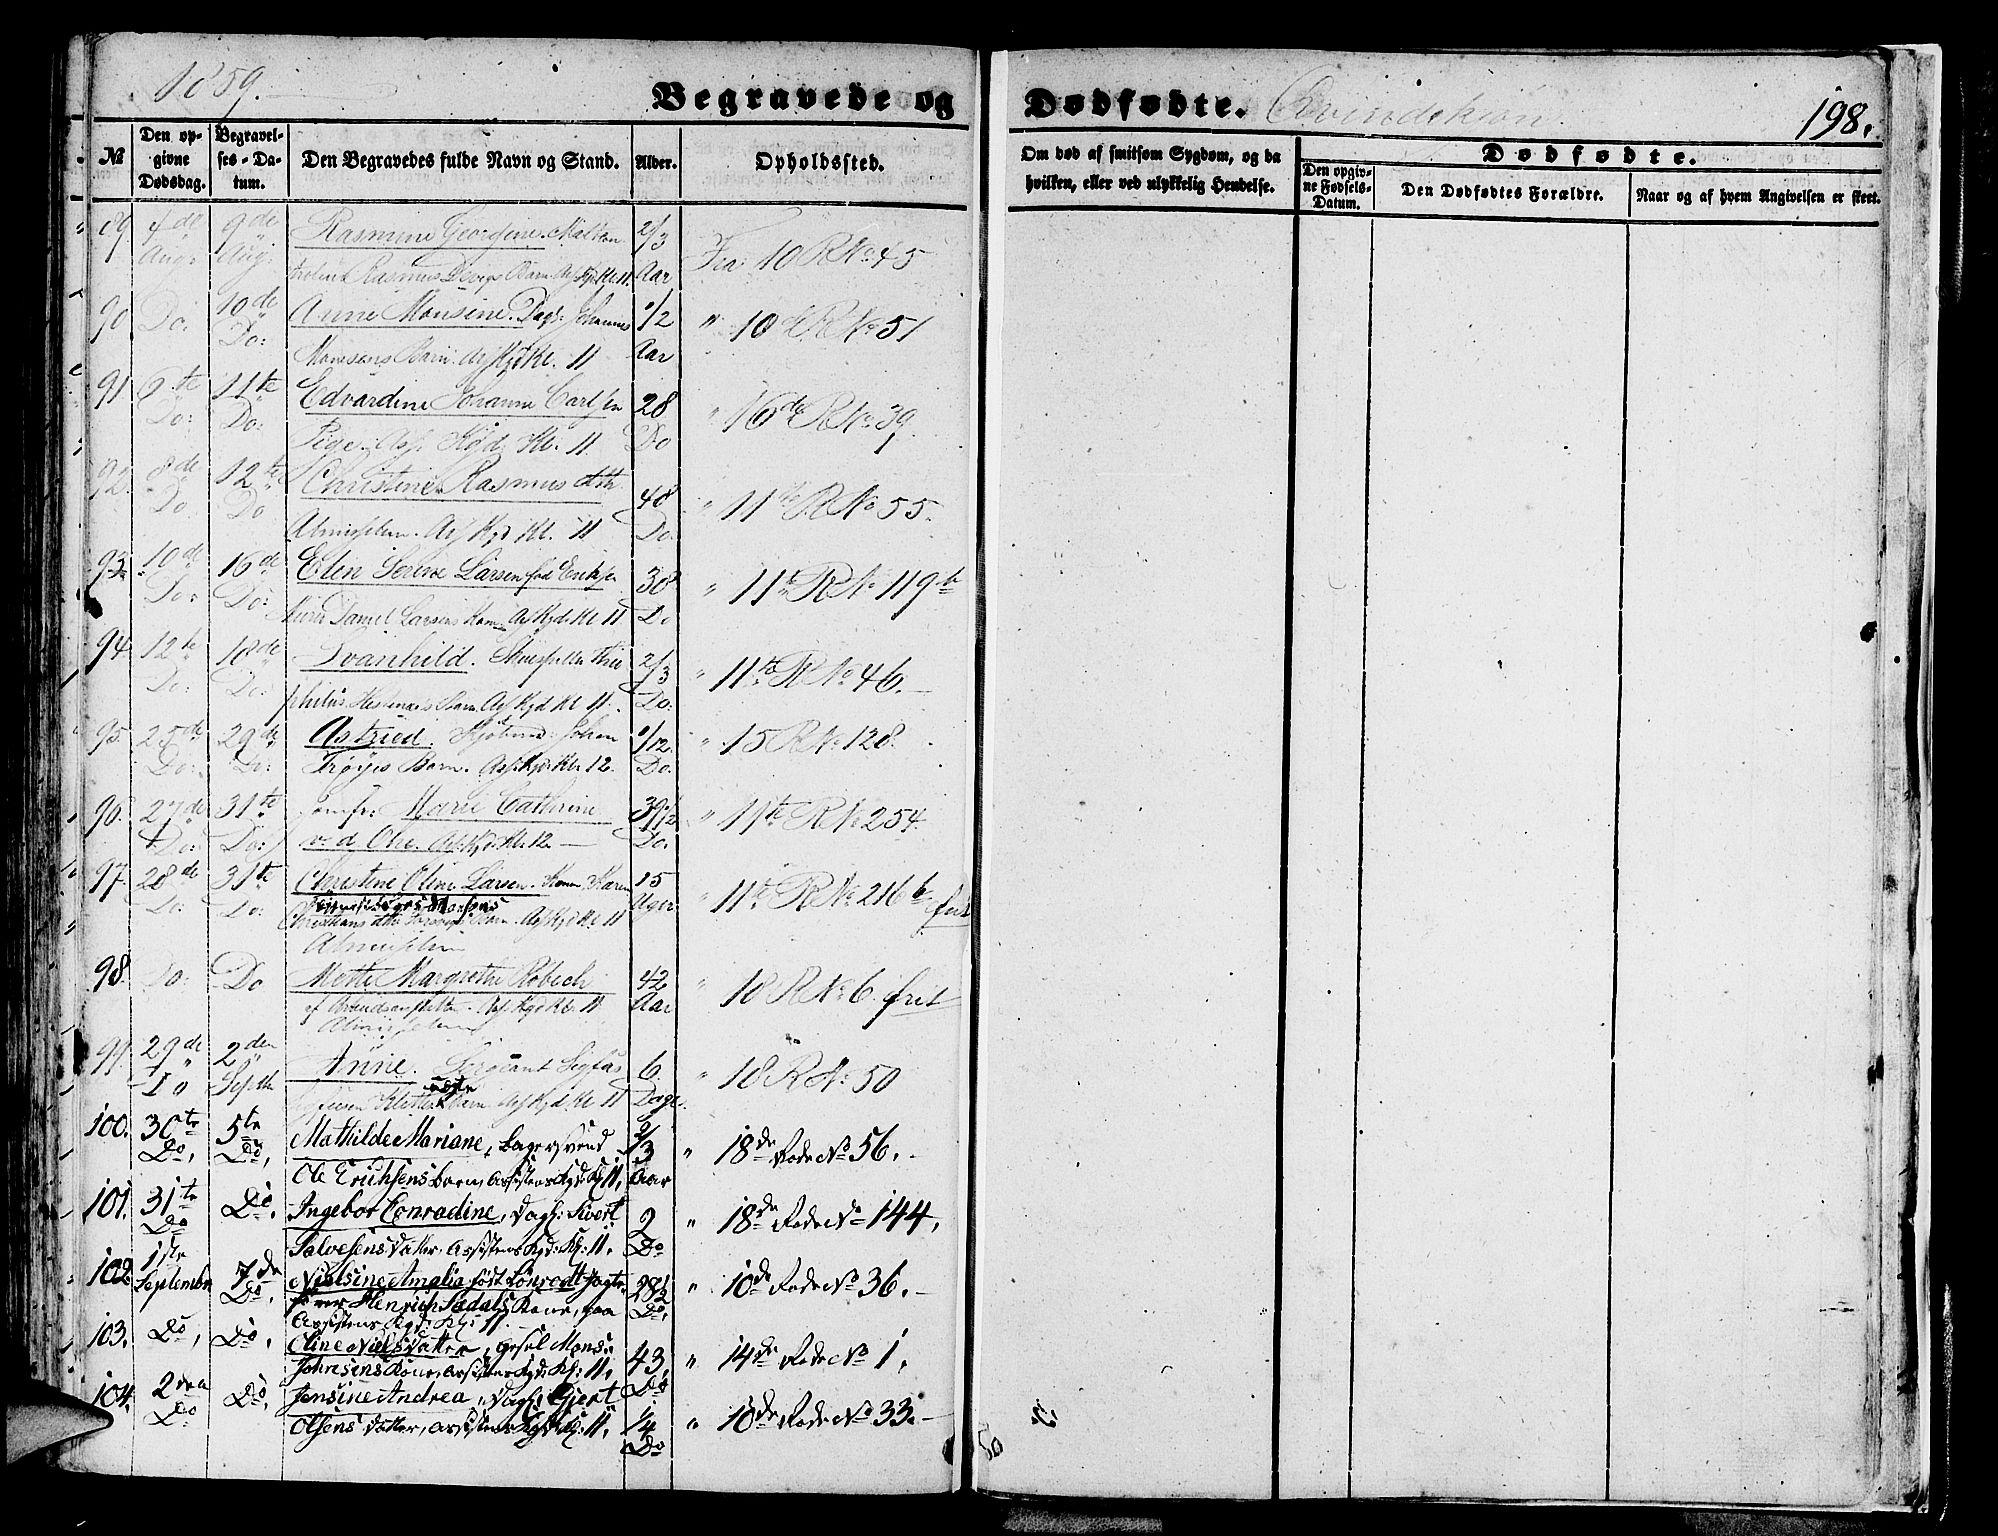 1859.
Begravede og Dødfødte. Qvindekiøn.
198.
№
Den opgivne Dødsdag.
Begravelses-Datum.
Den Begravedes fulde Navn og Stand.
Alder.
Opholdssted.
Om død af smitsom Sygdom, og da
hvilken, eller ved ulykkelig Hendelse.
Dødfødte.
Den opgivne Fødsels-Datum.
Den Dødfødtes Forældre.
Naar og af hvem Angivelsen er skeet.
89. 4de 9de Rasmine Georgine. 2/3 Fra 10 R No 45
Aug: Aug: Rasmus Barn. Kl. 11. Aar
90. Do. 10de Anne Monsine. Dagl: Johannes 1/2 " 10de R No 51
Do: Monsens Barn. Kl. 11 Aar
91. 6te 11te Edvardine Johanne Carlsen 28 " 16de R No 39.
Do: Do: Pige. Ass. Kgd. Kl. 11. Do
92. 8de 12te Christine Rasmus dtr. 48 " 11te R No 55.
Do Do Almisselem. Ass Kgd Kl. 11 Do.
93. 10de 16de Elen Serine Larsen fød Eriksen 38 " 11te R No 119b
Do: Do: Daniel Larsens Kone Ass Kgd. Kl 11 Do
94. 12te 18de Svanhild. 2/3 " 11te R No 46.
Do: Do: Barn. Ass Kgd Kl 11. Do:
95. 25de 29de Astried. Johan 1/12 " 15 R No 128.
Do: Do: Trøyes Barn. Ass. Kgd. Kl. 12. Do.
96. 27de 31te Jomfr: Marie Cathrine 39 1/2 " 11te R No 254.
Do: Do: v. d. Ohe. Ass. Kgd. Kl. 12. Do.
97. 28de 31te Christine Oline Larsen. Karen 15 " 11te R No 216 b frit
Do: Do: Christians dtr Barn. Ass Kgd Kl 11 Uger
Almisselem
98. Do: Do Mette Margrethe Robech 42 " 18 R No 6. frit
Ass. Kgd Kl. 11 Aar
Almisselem
99. 29de 2den Anne. Sergeant Sigfus 6 " 18 R No 50
Do Septb. udøbte Barn Ass Kgd Kl 11 Dage.
100. 30te 5te Mathilde Mariane, Bagersvend 2/3 " 18de Rode No 56.
Do, Do, Ole Erichsens Barn, Assistens Kgd: Kl: 11. Aar
101. 31te Do, Ingebor Conradine, Dagl: Sivert 2 " 18de Rode No 144.
Do Salvesens Datter, Assistens Kgd: Kl: 11. Do
102. 1ste 7de Nielsine Amalia født Lønrodt Jagte- 28 1/2 " 10de Rode No 36.
September Do, fører Henrich Sædals Kone, paa Do,
Assistens Kgd: Kl: 11.
103. Do, Do, Oline Nielsdatter, Gesel Mons 43, " 14de Rode No 1.
Johnsens Kone, Assistens Kgd: Kl: 11. Do
104. 2den Do, Jensine Andrea, Dagl: Gjert 1/4 " 10de Rode No 33.
Do Olsens Datter, Assistens Kgd: Kl: 11. Do